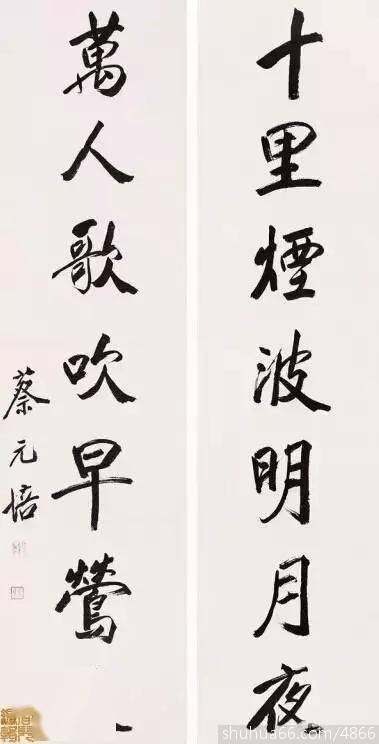 十里煙波明月夜
萬人歌吹早鶯
蔡元培
shuhua66.com/4866